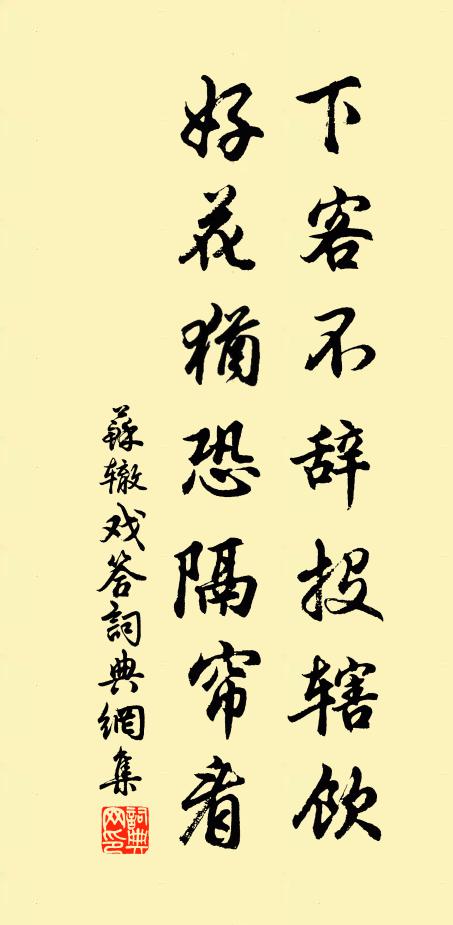 下客不辞投辖饮
好花犹恐隔帘看
蘇辙戏答詞典網集
詞典网印